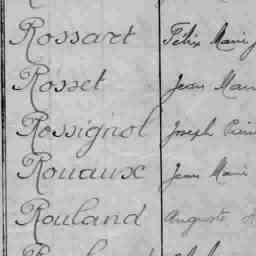 Rossart Félix Marie
Rosset Jean Marie
Rossignol Joseph Pierre
Rouaux Jean Marie
Rouland Auguste